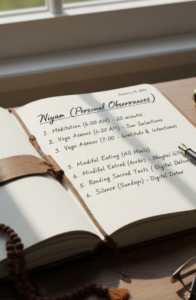 January 15, 2024
Niyam (Personal Observances)
1. Meditation (6:00 AM) - 20 minutes
2. Yoga Asanas (6:20 AM) - Sun Salutations
3. Yoga Asanas (7:00 - Gratitude & Intentions
5. Mindful Eating (All Meals)
4. Mindful
5. Reading Sacred Texts (Digital Detox
6. Silence (Sundays) - Digital Detox